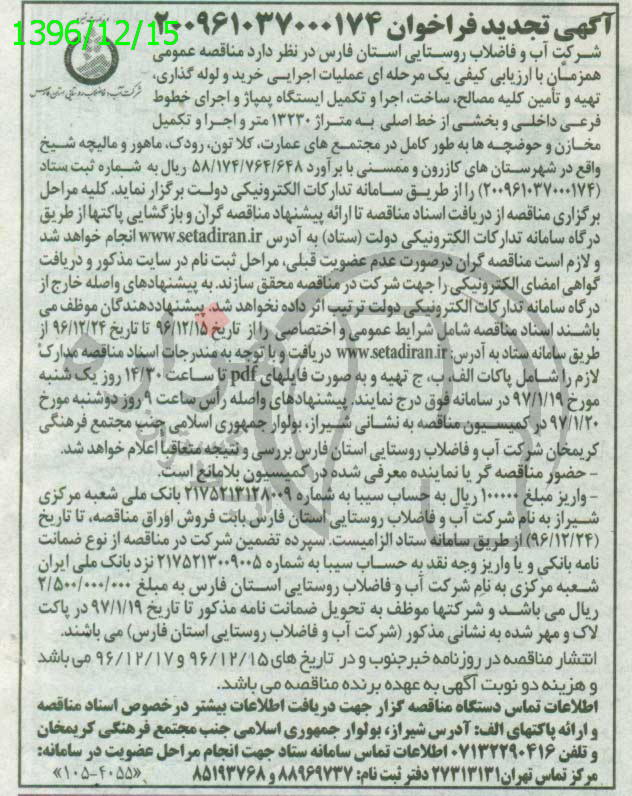 1396/12/15
آگهی تجدید فراخوان ۲۰۰۹۶۱۰۳۷۰۰۰۱۷۴
شرکت آب و فاضلاب روستایی استان فارس در نظر دارد مناقصه عمومی
همزمان با ارزیابی کیفی یک مرحله ای عملیات اجرایی خرید و لوله گذاری،
تهیه و تأمین کلیه مصالح، ساخت، اجرا و تکمیل ایستگاه پمپاژ و اجرای خطوط
فرعی داخلی و بخشی از خط اصلی به متراژ ۱۳۲۳۰ متر و اجرا و تکمیل
مخازن و حوضچه ها به طور کامل در مجتمع های عمارت، کلا تون، رودک، ماهور و مالیچه شیخ
واقع در شهرستان های کازرون و ممسنی با برآورد ۵۸/۱۷۴/۷۶۴/۶۴۸ ریال به شماره ثبت ستاد
(۲۰۰۹۶۱۰۳۷۰۰۰۱۷۴) را از طریق سامانه تدارکات الکترونیکی دولت برگزار نماید. کلیه مراحل
برگزاری مناقصه از دریافت اسناد مناقصه تا ارائه پیشنهاد مناقصه گران و بازگشایی پاکتها از طریق
درگاه سامانه تدارکات الکترونیکی دولت (ستاد) به آدرس www.setadiran.ir انجام خواهد شد
و لازم است مناقصه گران درصورت عدم عضویت قبلی، مراحل ثبت نام در سایت مذکور و دریافت
گواهی امضای الکترونیکی را جهت شرکت در مناقصه محقق سازند. به پیشنهادهای واصله خارج از
درگاه سامانه تدارکات الکترونیکی دولت ترتیب اثر داده نخواهد شد. پیشنهاددهندگان موظف می
باشند اسناد مناقصه شامل شرایط عمومی و اختصاصی را از تاریخ ۹۶/۱۲/۱۵ تا تاریخ ۹۶/۱۲/۲۴ از
طریق سامانه ستاد به آدرس: www.setadiran.ir دریافت و با توجه به مندرجات اسناد مناقصه مدارک
لازم را شامل پاکات الف، ب، ج تهیه و به صورت فایلهای pdf تا ساعت ۱۴/۳۰ روز یک شنبه
مورخ ۹۷/۱/۱۹ در سامانه فوق درج نمایند. پیشنهادهای واصله رأس ساعت ۹ روز دوشنبه مورخ
۹۷/۱/۲۰ در کمیسیون مناقصه به نشانی شیراز، بولوار جمهوری اسلامی جنب مجتمع فرهنگی
کریمخان شرکت آب و فاضلاب روستایی استان فارس بررسی و نتیجه متعاقبا اعلام خواهد شد.
- حضور مناقصه گر یا نماینده معرفی شده در کمیسیون بلامانع است.
- واریز مبلغ ۱۰۰۰۰۰ ریال به حساب سیبا به شماره ۲۱۷۵۲۱۳۱۲۸۰۰۹ بانک ملی شعبه مرکزی
شیراز به نام شرکت آب و فاضلاب روستایی استان فارس بابت فروش اوراق مناقصه، تا تاریخ
(۹۶/۱۲/۲۴) از طریق سامانه ستاد الزامیست. سپرده تضمین شرکت در مناقصه از نوع ضمانت
نامه بانکی و یا واریز وجه نقد به حساب سیبا به شماره ۲۱۷۵۲۱۳۰۰۹۰۰۵ نزد بانک ملی ایران
شعبه مرکزی به نام شرکت آب و فاضلاب روستایی استان فارس به مبلغ ۲/۵۰۰/۰۰۰/۰۰۰
ریال می باشد و شرکتها موظف به تحویل ضمانت نامه مذکور تا تاریخ ۹۷/۱/۱۹ در پاکت
لاک و مهر شده به نشانی مذکور (شرکت آب و فاضلاب روستایی استان فارس) می باشند.
انتشار مناقصه در روزنامه خبرجنوب و در تاریخ های ۹۶/۱۲/۱۵ و ۹۶/۱۲/۱۷ می باشد
و هزینه دو نوبت آگهی به عهده برنده مناقصه می باشد.
اطلاعات تماس دستگاه مناقصه گزار جهت دریافت اطلاعات بیشتر درخصوص اسناد مناقصه
و ارائه پاکتهای الف: آدرس شیراز، بولوار جمهوری اسلامی جنب مجتمع فرهنگی کریمخان
و تلفن ۰۷۱۳۲۲۹۰۴۱۶ اطلاعات تماس سامانه ستاد جهت انجام مراحل عضویت در سامانه:
مرکز تماس تهران ۲۷۳۱۳۱۳۱ دفتر ثبت نام: ۸۸۹۶۹۷۳۷ و ۸۵۱۹۳۷۶۸ «۱۰۵-۴۰۵۵»
شرکت آب و فاضلاب روستایی استان فارس